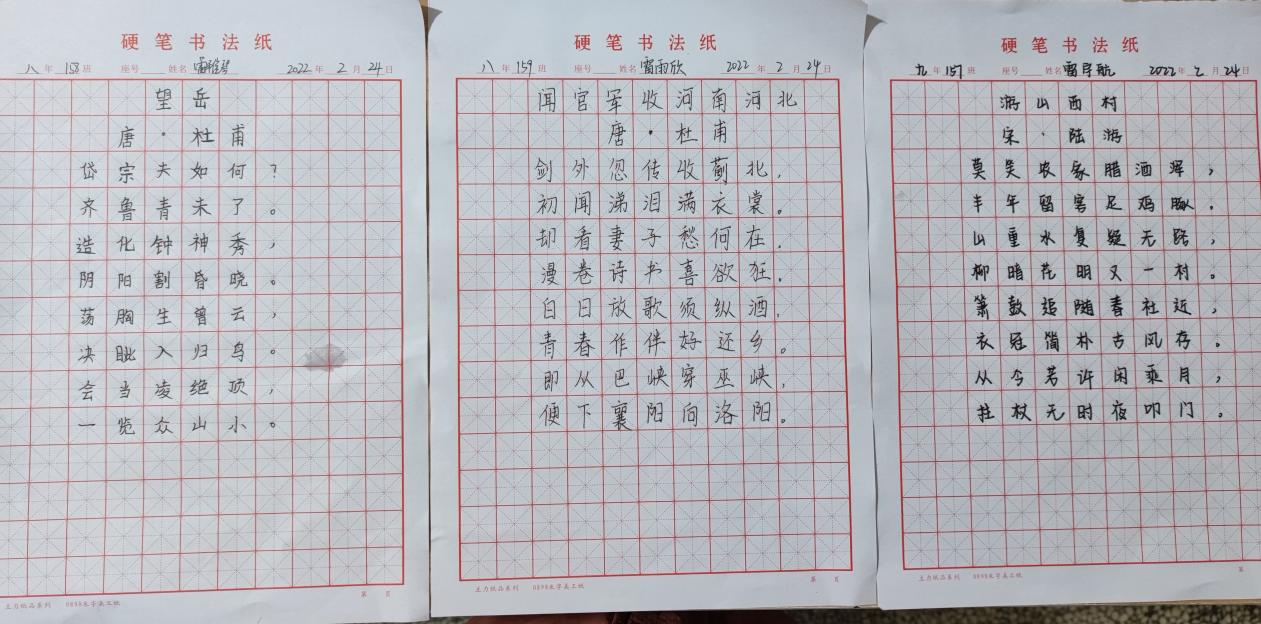 硬笔书法纸
八年 158班 座号 姓名 雷雅琴 2022年 2月 24日
望岳
唐·杜甫
岱宗夫如何?
齐鲁青未了。
造化钟神秀,
阴阳割昏晓。
荡胸生曾云,
决眦入归鸟。
会当凌绝顶,
一览众山小。
主力纸品系列 0898米字美工纸 第 页
硬笔书法纸
八年 159班 座号 姓名 雷雨欣 2022年 2月 24日
闻官军收河南河北
唐·杜甫
剑外忽传收蓟北,
初闻涕泪满衣裳。
却看妻子愁何在,
漫卷诗书喜欲狂。
白日放歌须纵酒,
青春作伴好还乡。
即从巴峡穿巫峡,
便下襄阳向洛阳。
主力纸品系列 0898米字美工纸 第 页
硬笔书法纸
九年 157班 座号 姓名 雷宇航 2022年 2月 24日
游山西村
宋·陆游
莫笑农家腊酒浑,
丰年留客足鸡豚。
山重水复疑无路,
柳暗花明又一村。
箫鼓追随春社近,
衣冠简朴古风存。
从今若许闲乘月,
拄杖无时夜叩门。
主力纸品系列 0898米字美工纸 第